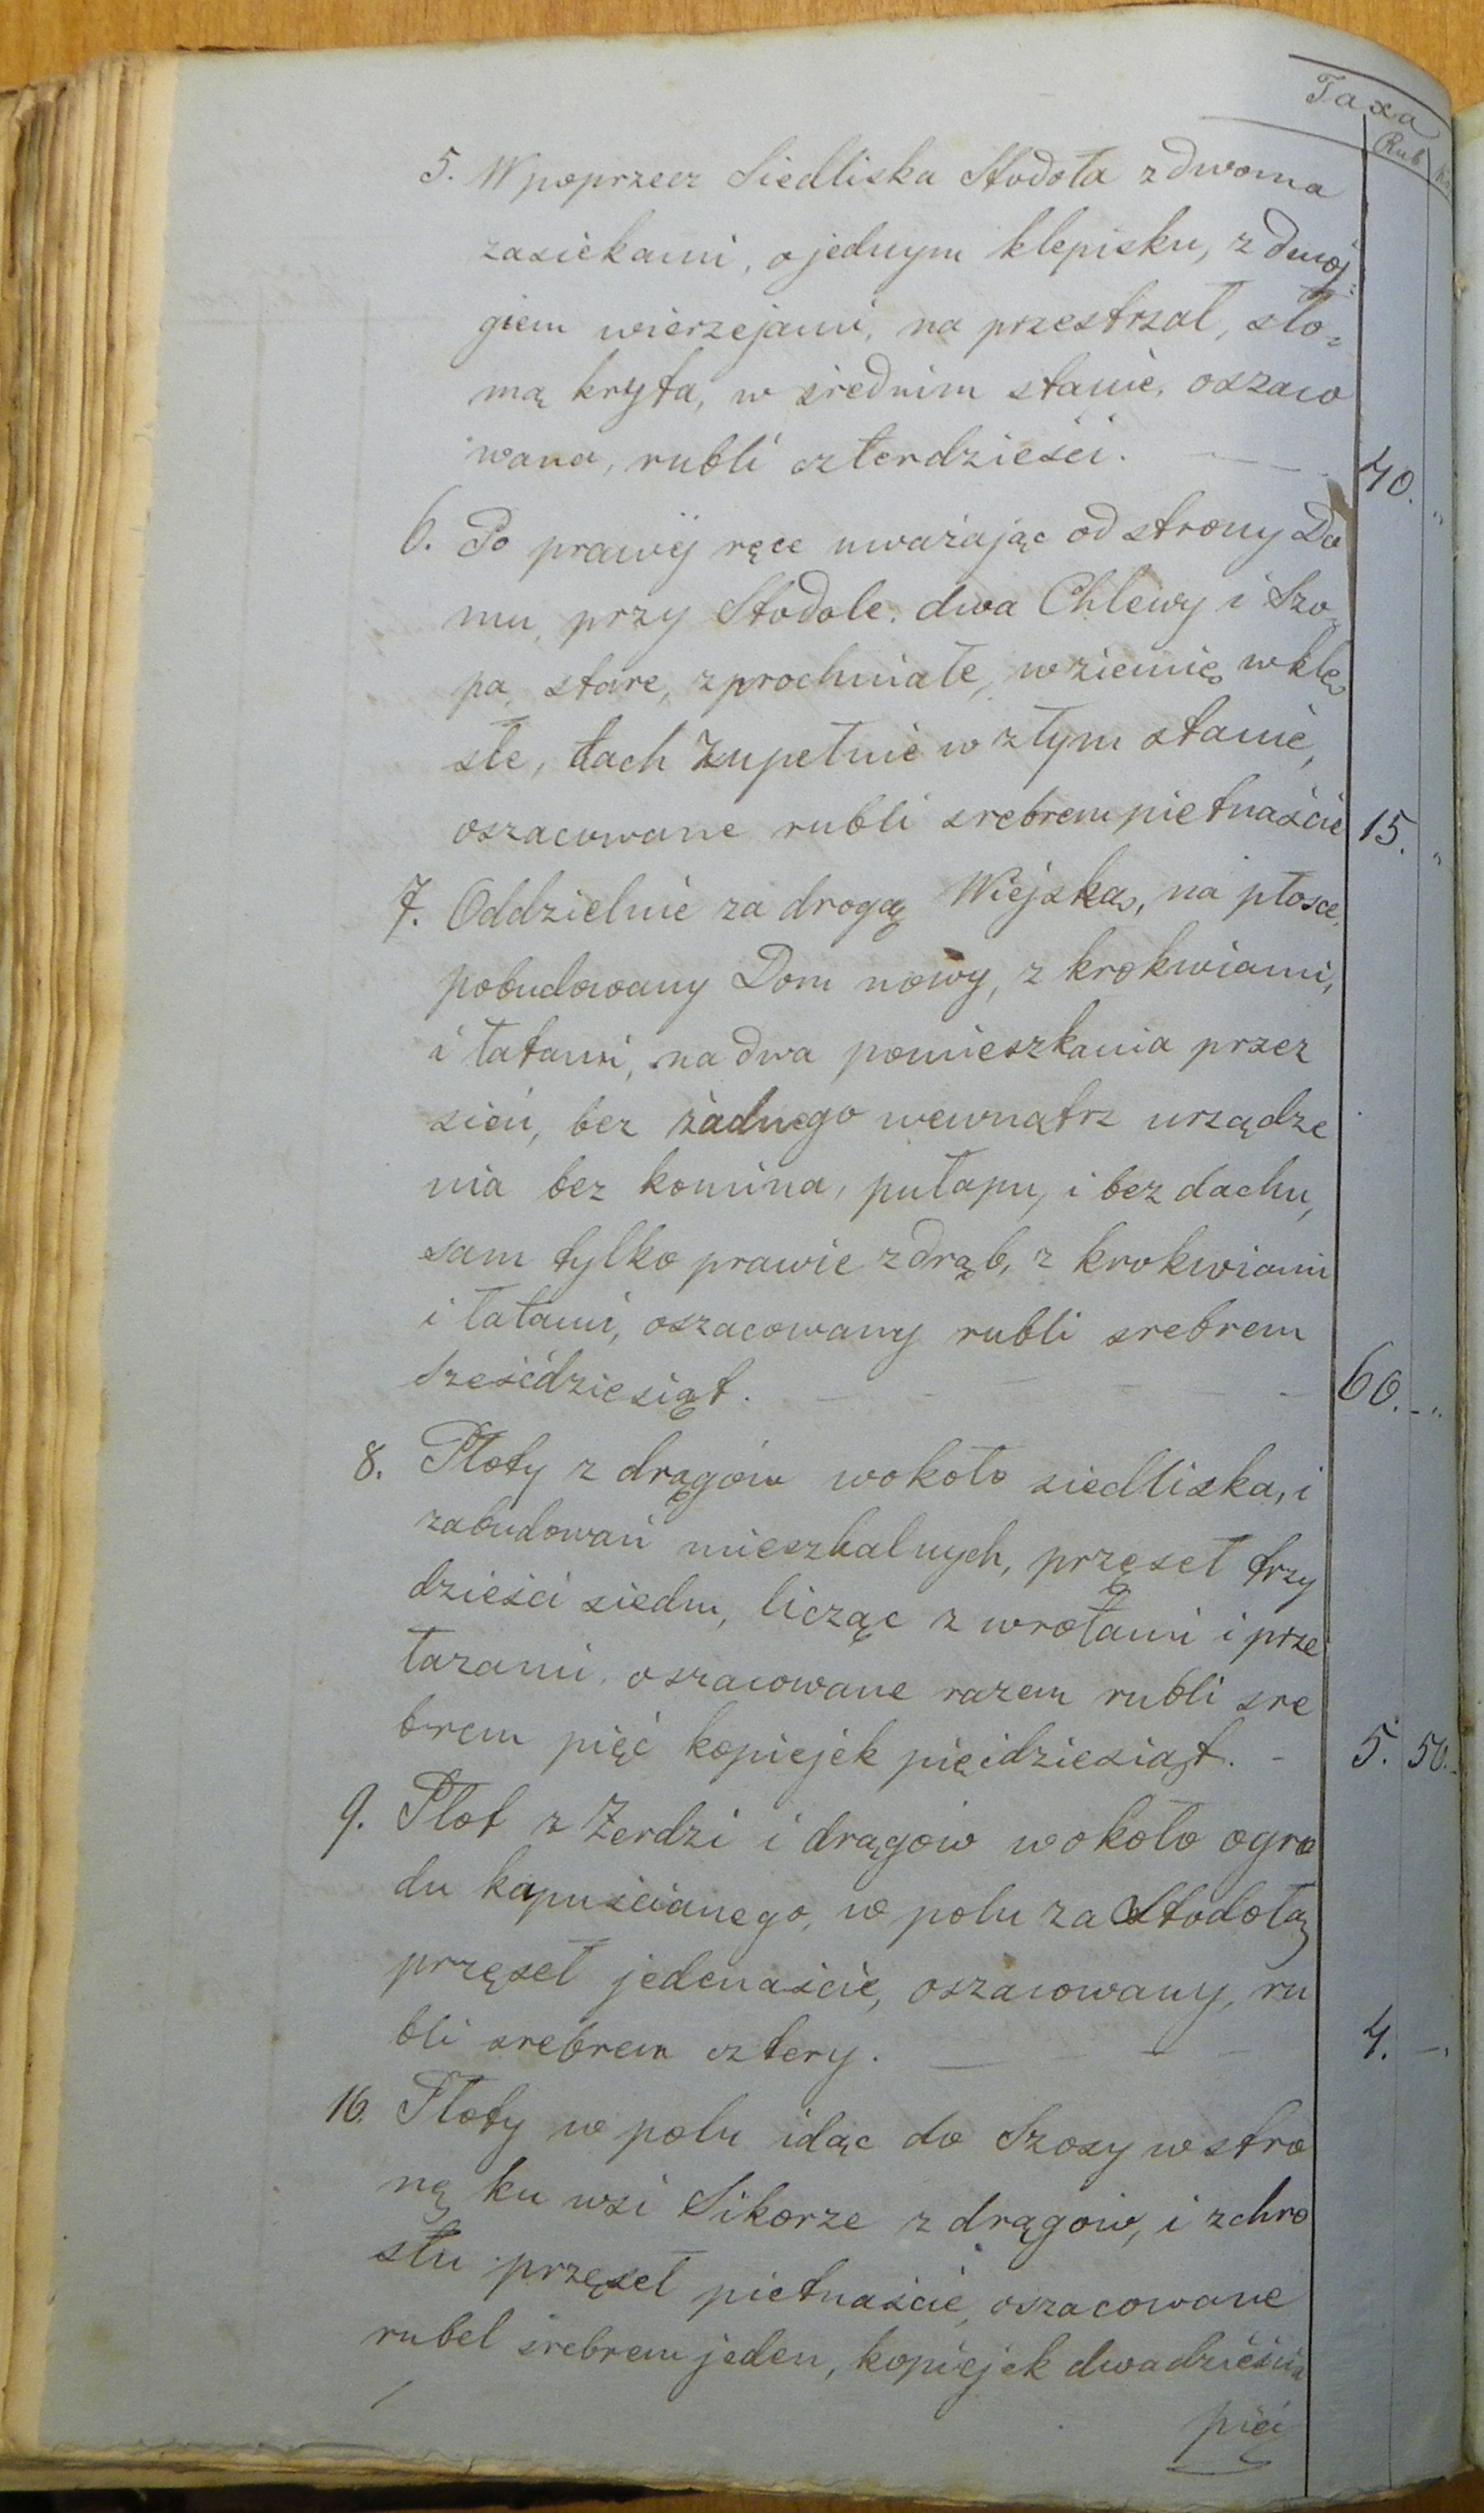 Taxa
Rub
5. W poprzecz Siedliska Stodoła z dwoma
zasiekami, o jednym klepisku, z dwoj=
giem wierzejami, na przestrzał, sło=
mą kryta, w średnim stanie, oszaco
wana, rubli czterdzieści. 40. "
6. Po prawéj ręce uważając od strony Do
mu, przy Stodole, dwa Chlewy i Szo=
pa, stare, zprochniałe, w ziemię wklę=
słe, dach zupełnie w złym stanie,
oszacowane rubli srebrem pietnaście 15. "
7. Oddzielnie za drogą Wiejską, na płosce,
pobudowany Dom nowy, z krokwiami,
i łatami, na dwa pomieszkania przez
sień, bez żadnego wewnątrz urządze
nia bez komina, pułapu, i bez dachu,
sam tylko prawie zdrąb, z krokwiami
i łatami, oszacowany rubli srebrem
sześćdziesiąt. 60. - "
8. Płoty z drągów wokoło siedliska, i
zabudowań mieszkalnych, przęseł trzy
dzieści siedm, licząc z wrotami i prze
łazami, oszacowane razem rubli sre
brem pięć kopiejek pięćdziesiąt. - 5. 50.
9. Płot z Żerdzi i drągów wokoło ogro
du kapuścianego, w polu za Stodołą
przęseł jedenaście, oszacowany, ru
bli srebrem cztery. 4. -
10. Płoty w polu idąc do Szosy w stro
nę ku wsi Sikorze z drągów, i z chro
stu przęseł pietnaście, oszacowane
rubel srebrem jeden, kopiejek dwadzieścia
pięć